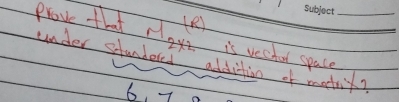 Subject
Prove that M 2x2 (R) is vector space
under standered addition of matrix?